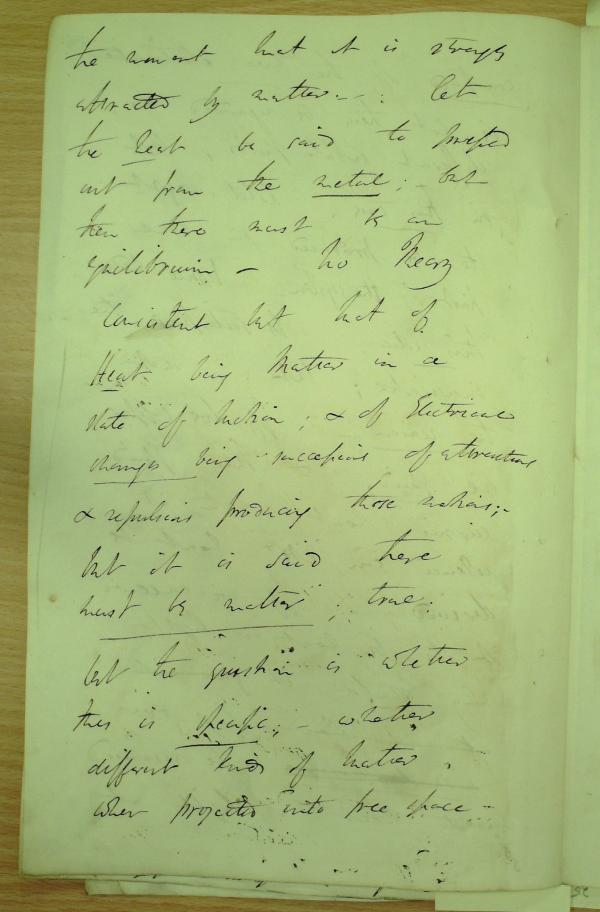 the moment that it is strongly
attracted by matter - : let
the heat be said to
out from the metal; but
then there must be an
equilibrium - No theory
consistent but that of
Heat being Matter in a
state of motion; & of Electrical
changes being successions of attractions
& repulsions producing those motions; -
but it is said there
must be matter; true:
but the question is whether
this is specific; - whether
different kinds of matter,
when projected into free space -